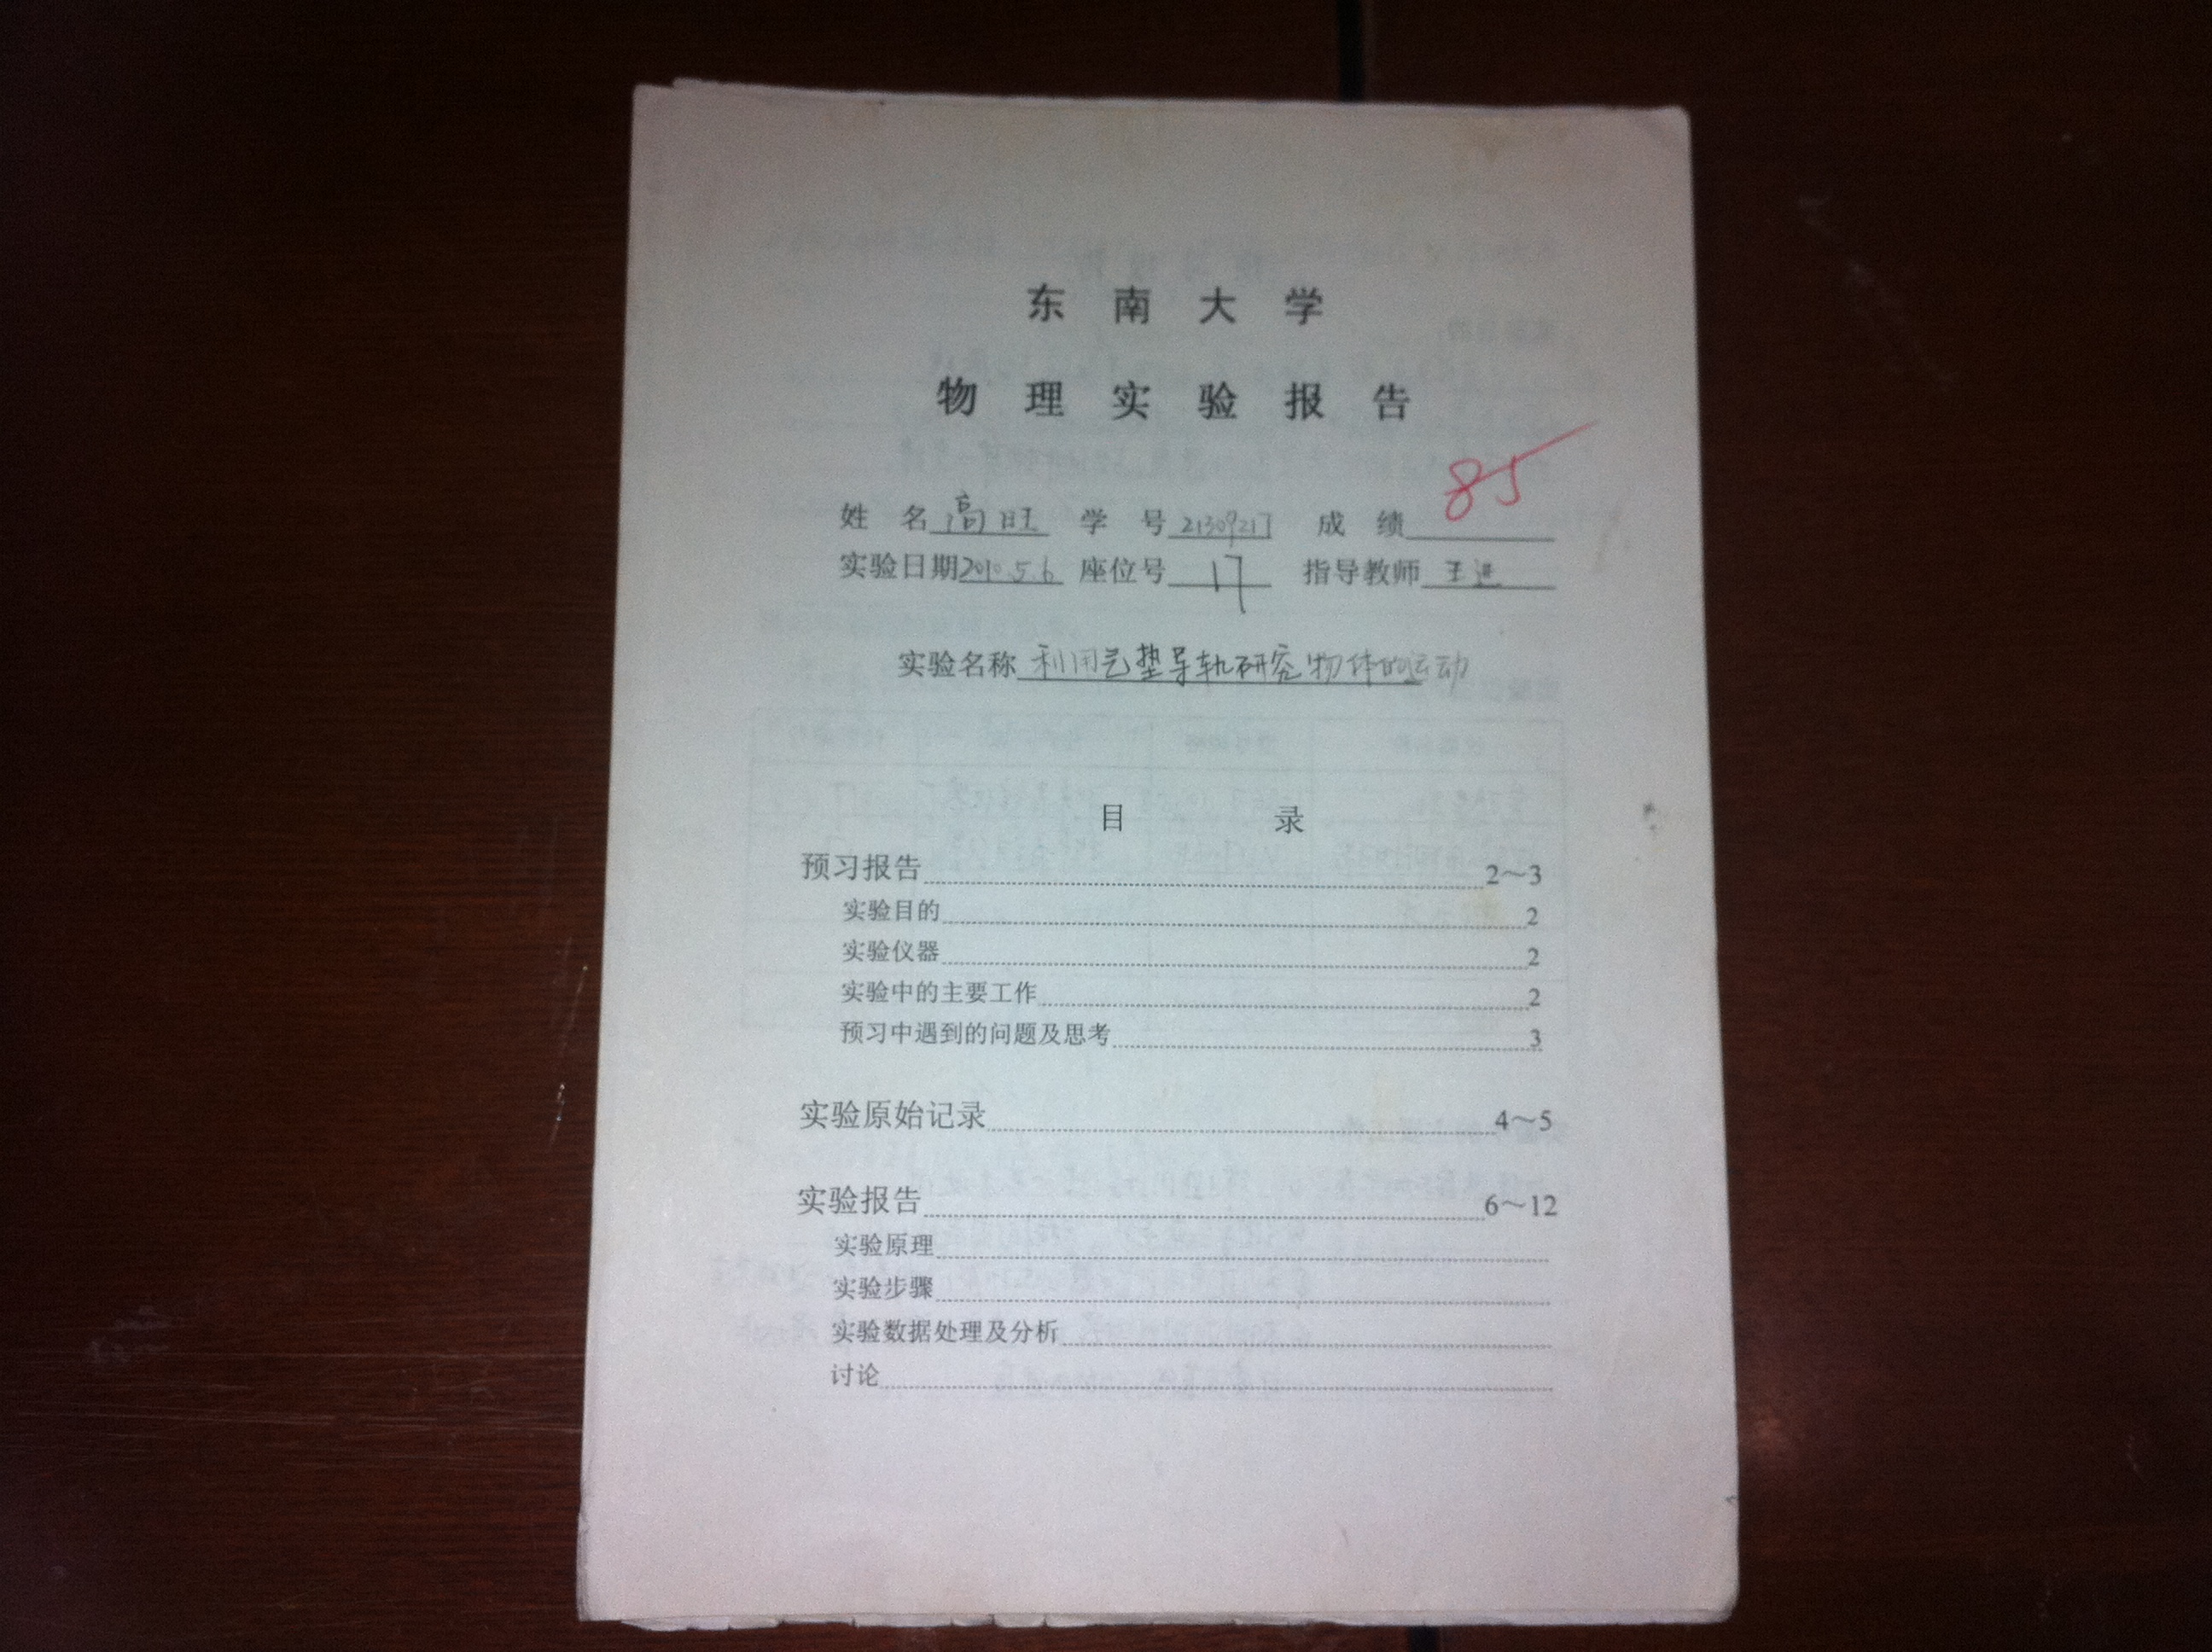 东南大学
物理实验报告
85
姓名 高旺 学号 21309217 成绩
实验日期 2010.5.6 座位号 17 指导教师 王进
实验名称 利用气垫导轨研究物体的运动
目录
预习报告 2～3
实验目的 2
实验仪器 2
实验中的主要工作 2
预习中遇到的问题及思考 3
实验原始记录 4～5
实验报告 6～12
实验原理
实验步骤
实验数据处理及分析
讨论